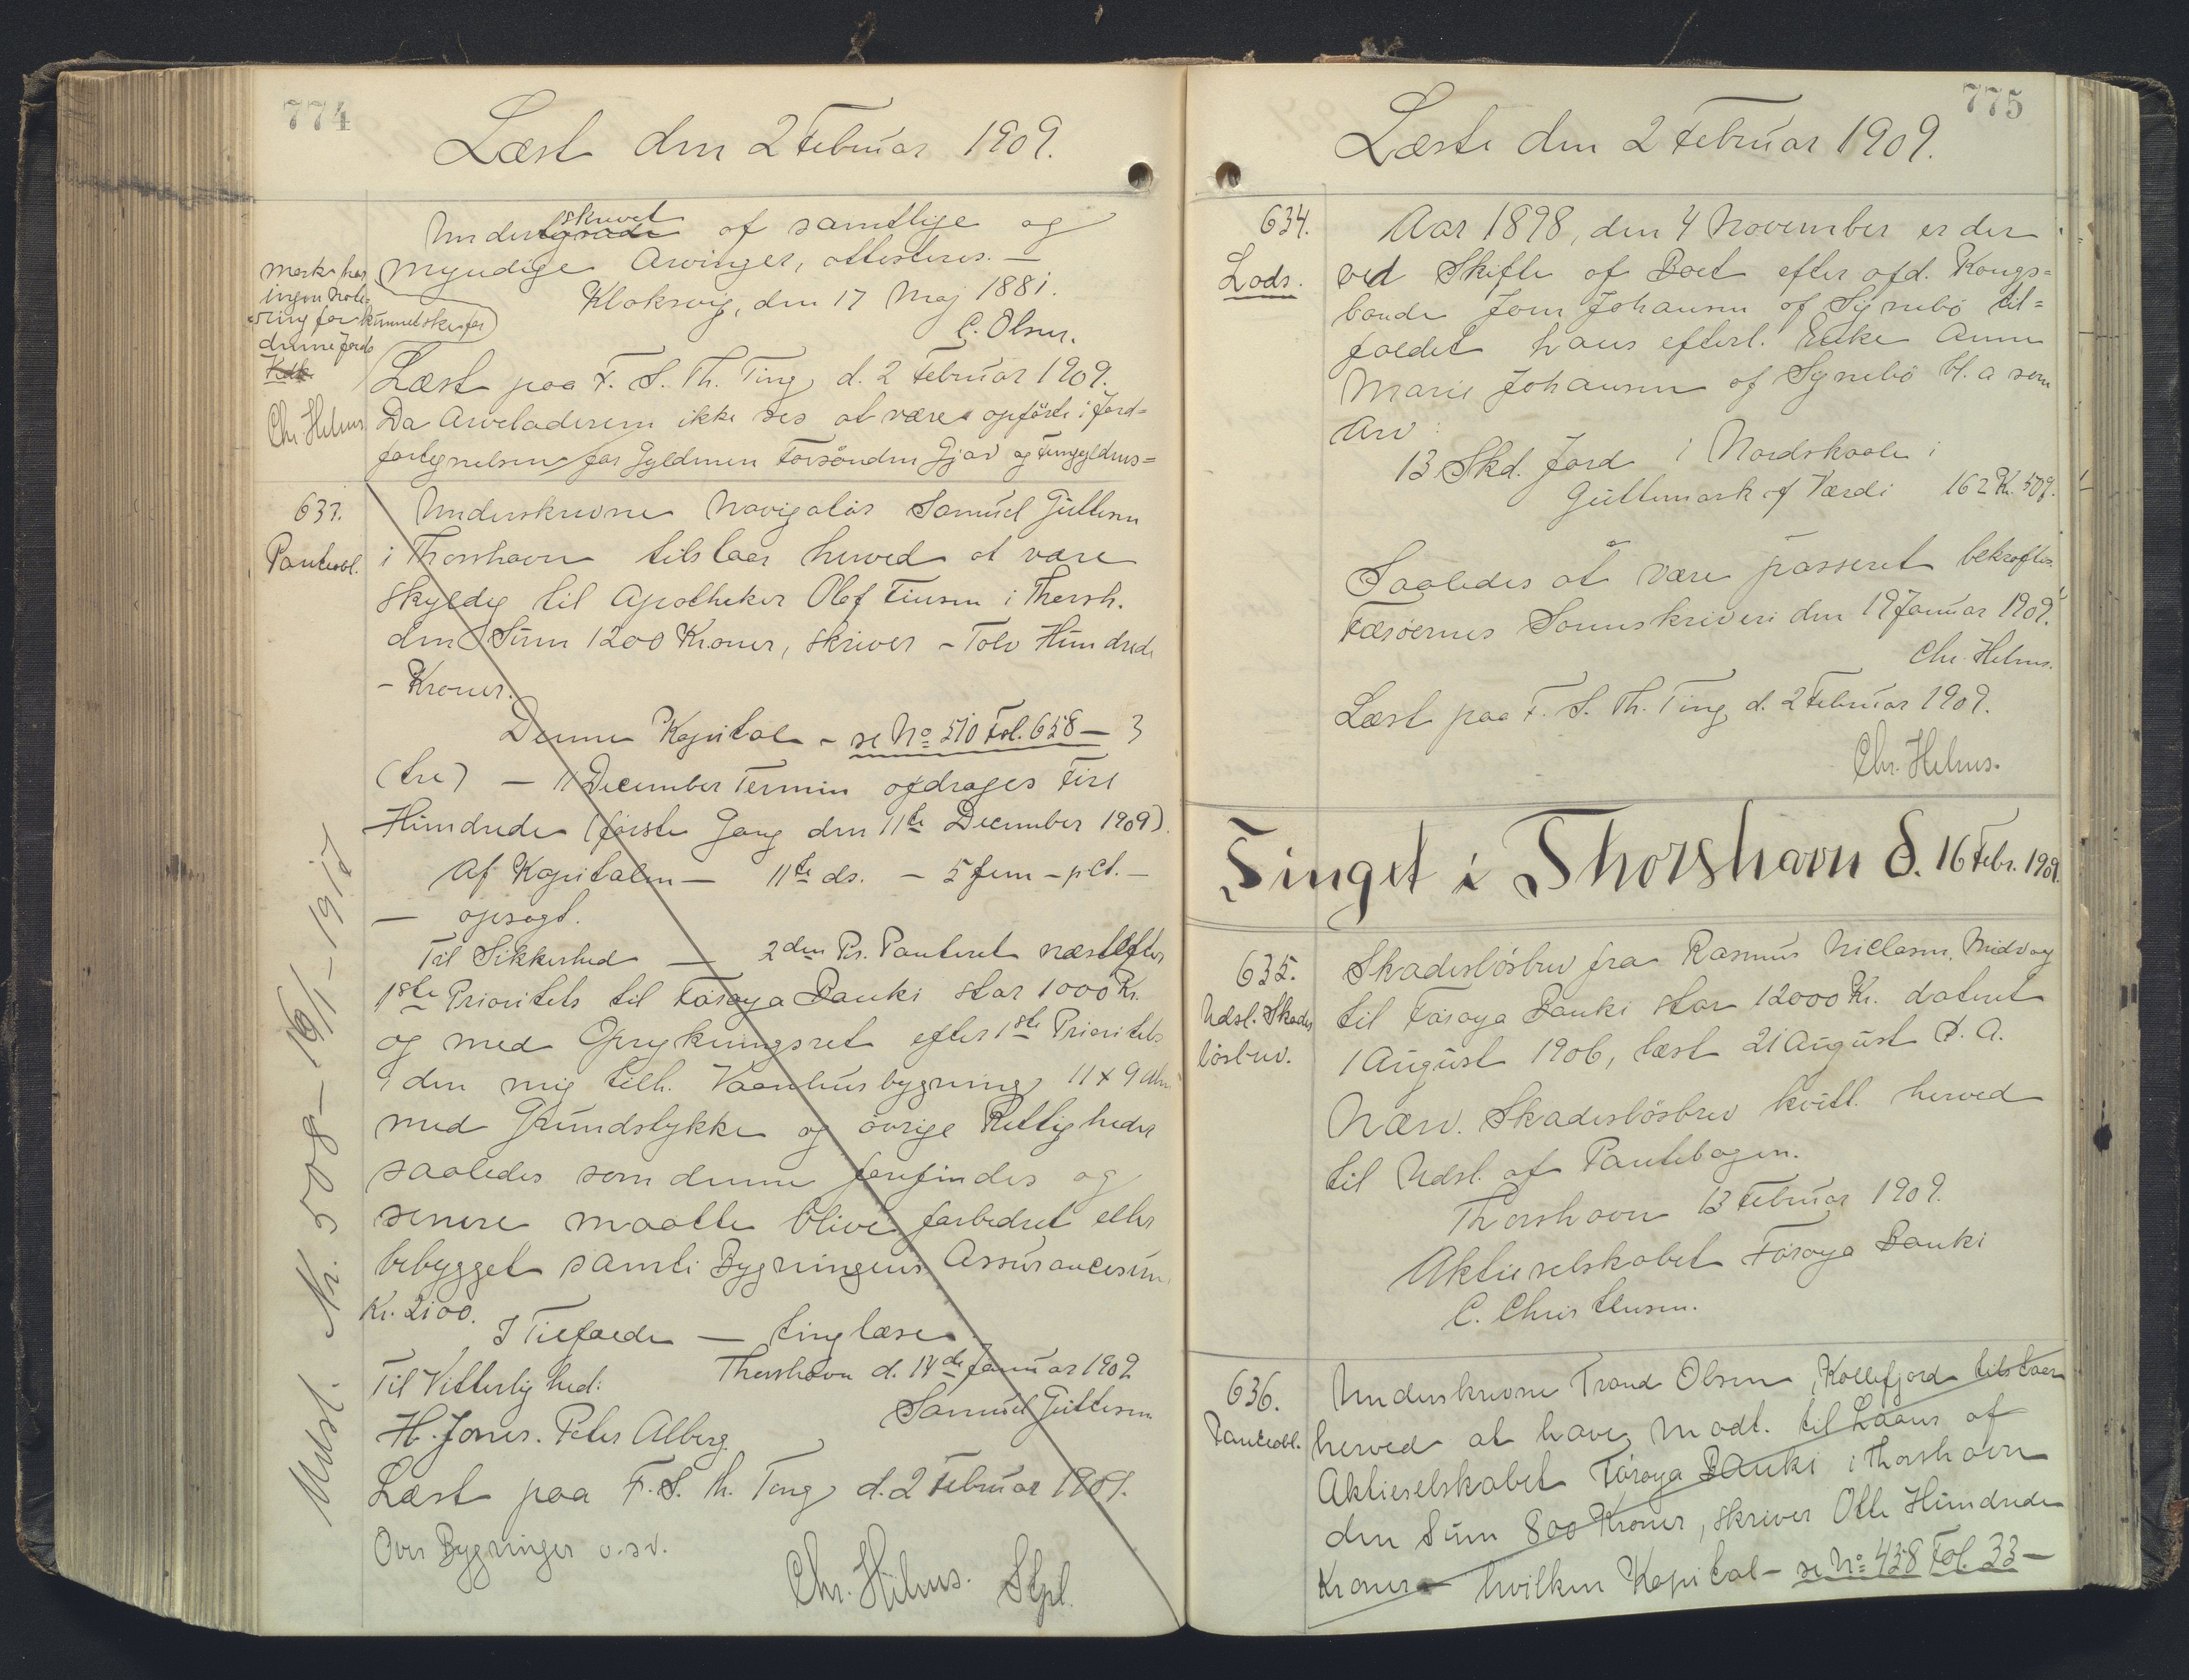 774
Læst den 2 Februar 1909.
skrevet
Undertgnede af samtlige og
myndige Arvinger, attesteres. —
Klaksvig, den 17 Maj 1881.
C. Olsen.
Læst paa F. S. Th. Ting d. 2 Februar 1909.
Da Arveladeren ikke ses at være opförte i Jord=
fortegnelsen for Gyldenen
mark har
ingen Note=
ring for
denne Jord
Kdk
Chr. Helms.
633.
Panteobl.
Underskrevne Navigatör Samuel Güttesen
i Thorshavn tilstaar herved at være
skyldig til Apotheker Olaf Finsen i Thorsh.
den Sum 1200 Kroner, skriver – Tolv Hundrede
– Kroner.
Denne Kapital – se No 510 Fol. 658 — 3
(tre) — 11 December Termin afdrages Fire
Hundrede (første Gang den 11te December 1909).
Af Kapitalen — 11te ds. — 5 fem – pCt. —
— opsagt.
Til Sikkerhed — 2den Pr. Panteret næstefter
1ste Prioritets til Föroya Banki stor 1000 Kr.
og med Oprykningsret efter 1ste Prioritets
i den mig tilh. Vaanhusbygning 11 x 9 Alen
med Grundstykke og övrige Rettigheder
saaledes som denne forefindes og
senere maatte blive forbedret eller
bebygget samt i Bygningens Assurancesum
Kr. 2100.
I Tilfælde — tinglæse
Thorshavn d. 14de Januar 1909
Til Vitterlighed:
Samuel Güttesen
H. Jones. Peter Alberg.
Læst paa F. S. Th. Ting d. 2 Februar 1909.
Over Bygninger o.s.v.
Chr. Helms. Stpl.
Udsl. Nr. 508 —
775
Læste den 2 Februar 1909.
634.
Lods.
Aar 1898, den 4 November er der
ved Skifte af Boet efter afd. Kongs=
bonde Joen Johansen af Synebö til=
faldet hans efterl. Enke Anne
Marie Johansen af Synebö bl. a som
Arv:
13 Skd. Jord i Nordskaale i
Guttemark af Værdi 162 Kr. 50 ø.
Saaledes at være passeret bekræftes.
Færöernes Sorenskriveri den 19 Januar 1909.
Chr. Helms.
Læst paa F. S. Th. Ting d. 2 Februar 1909.
Chr. Helms.
Tinget i Thorshavn d. 16 Febr. 1909.
635.
Udsl. Skades
lösbrev.
Skadeslösbrev fra Rasmus Niclasen, Midvaag
til Föroya Banki stor 12000 Kr. dateret
1 August 1906, læst 21 August s. A.
Nærv. Skadeslösbrev kvitt. herved
til Udsl. af Pantebogen.
Thorshavn 13 Februar 1909.
Aktieselskabet Föroya Banki
C. Christensen.
636.
Panteobl.
Underskrevne Trond Olsen, Kollefjord tilstaar
herved at have modt. til Laans af
Aktieselskabet Föroya Banki i Thorshavn
den Sum 800 Kroner, skriver Otte Hundrede
Kroner – hvilken Kapital – se No 438 Fol. 33 —